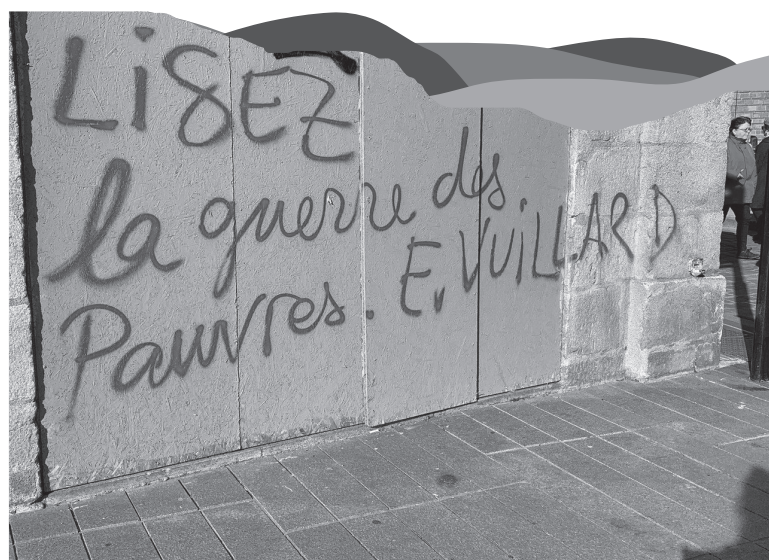 LiSEZ
la guerre des
Pauvres. E. VUiLLARD